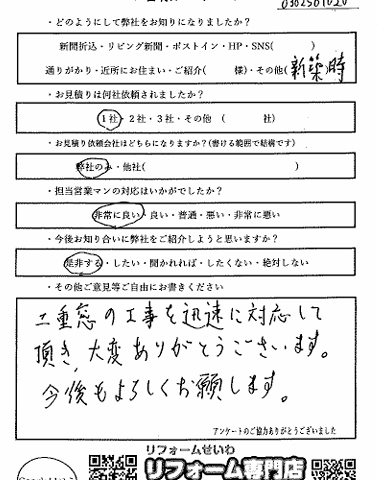 0302501020
・どのようにして弊社をお知りになりましたか?
新聞折込・リビング新聞・ポストイン・HP・SNS( )
通りがかり・近所にお住まい・ご紹介( 様)・その他(新築時
・お見積りは何社依頼されましたか?
1社・2社・3社・その他 ( 社)
・お見積り依頼会社はどちらになりますか?(書ける範囲で結構です)
弊社のみ・他社( )
・担当営業マンの対応はいかがでしたか?
非常に良い・良い・普通・悪い・非常に悪い
・今後お知り合いに弊社をご紹介しようと思いますか?
是非する・したい・聞かれれば・したくない・絶対しない
・その他ご意見等ご自由にお書きください
二重窓の工事を迅速に対応して
頂き、大変ありがとうございます。
今後もよろしくお願します。
アンケートのご協力ありがとうございました
リフォームせいわ
リフォーム専門店